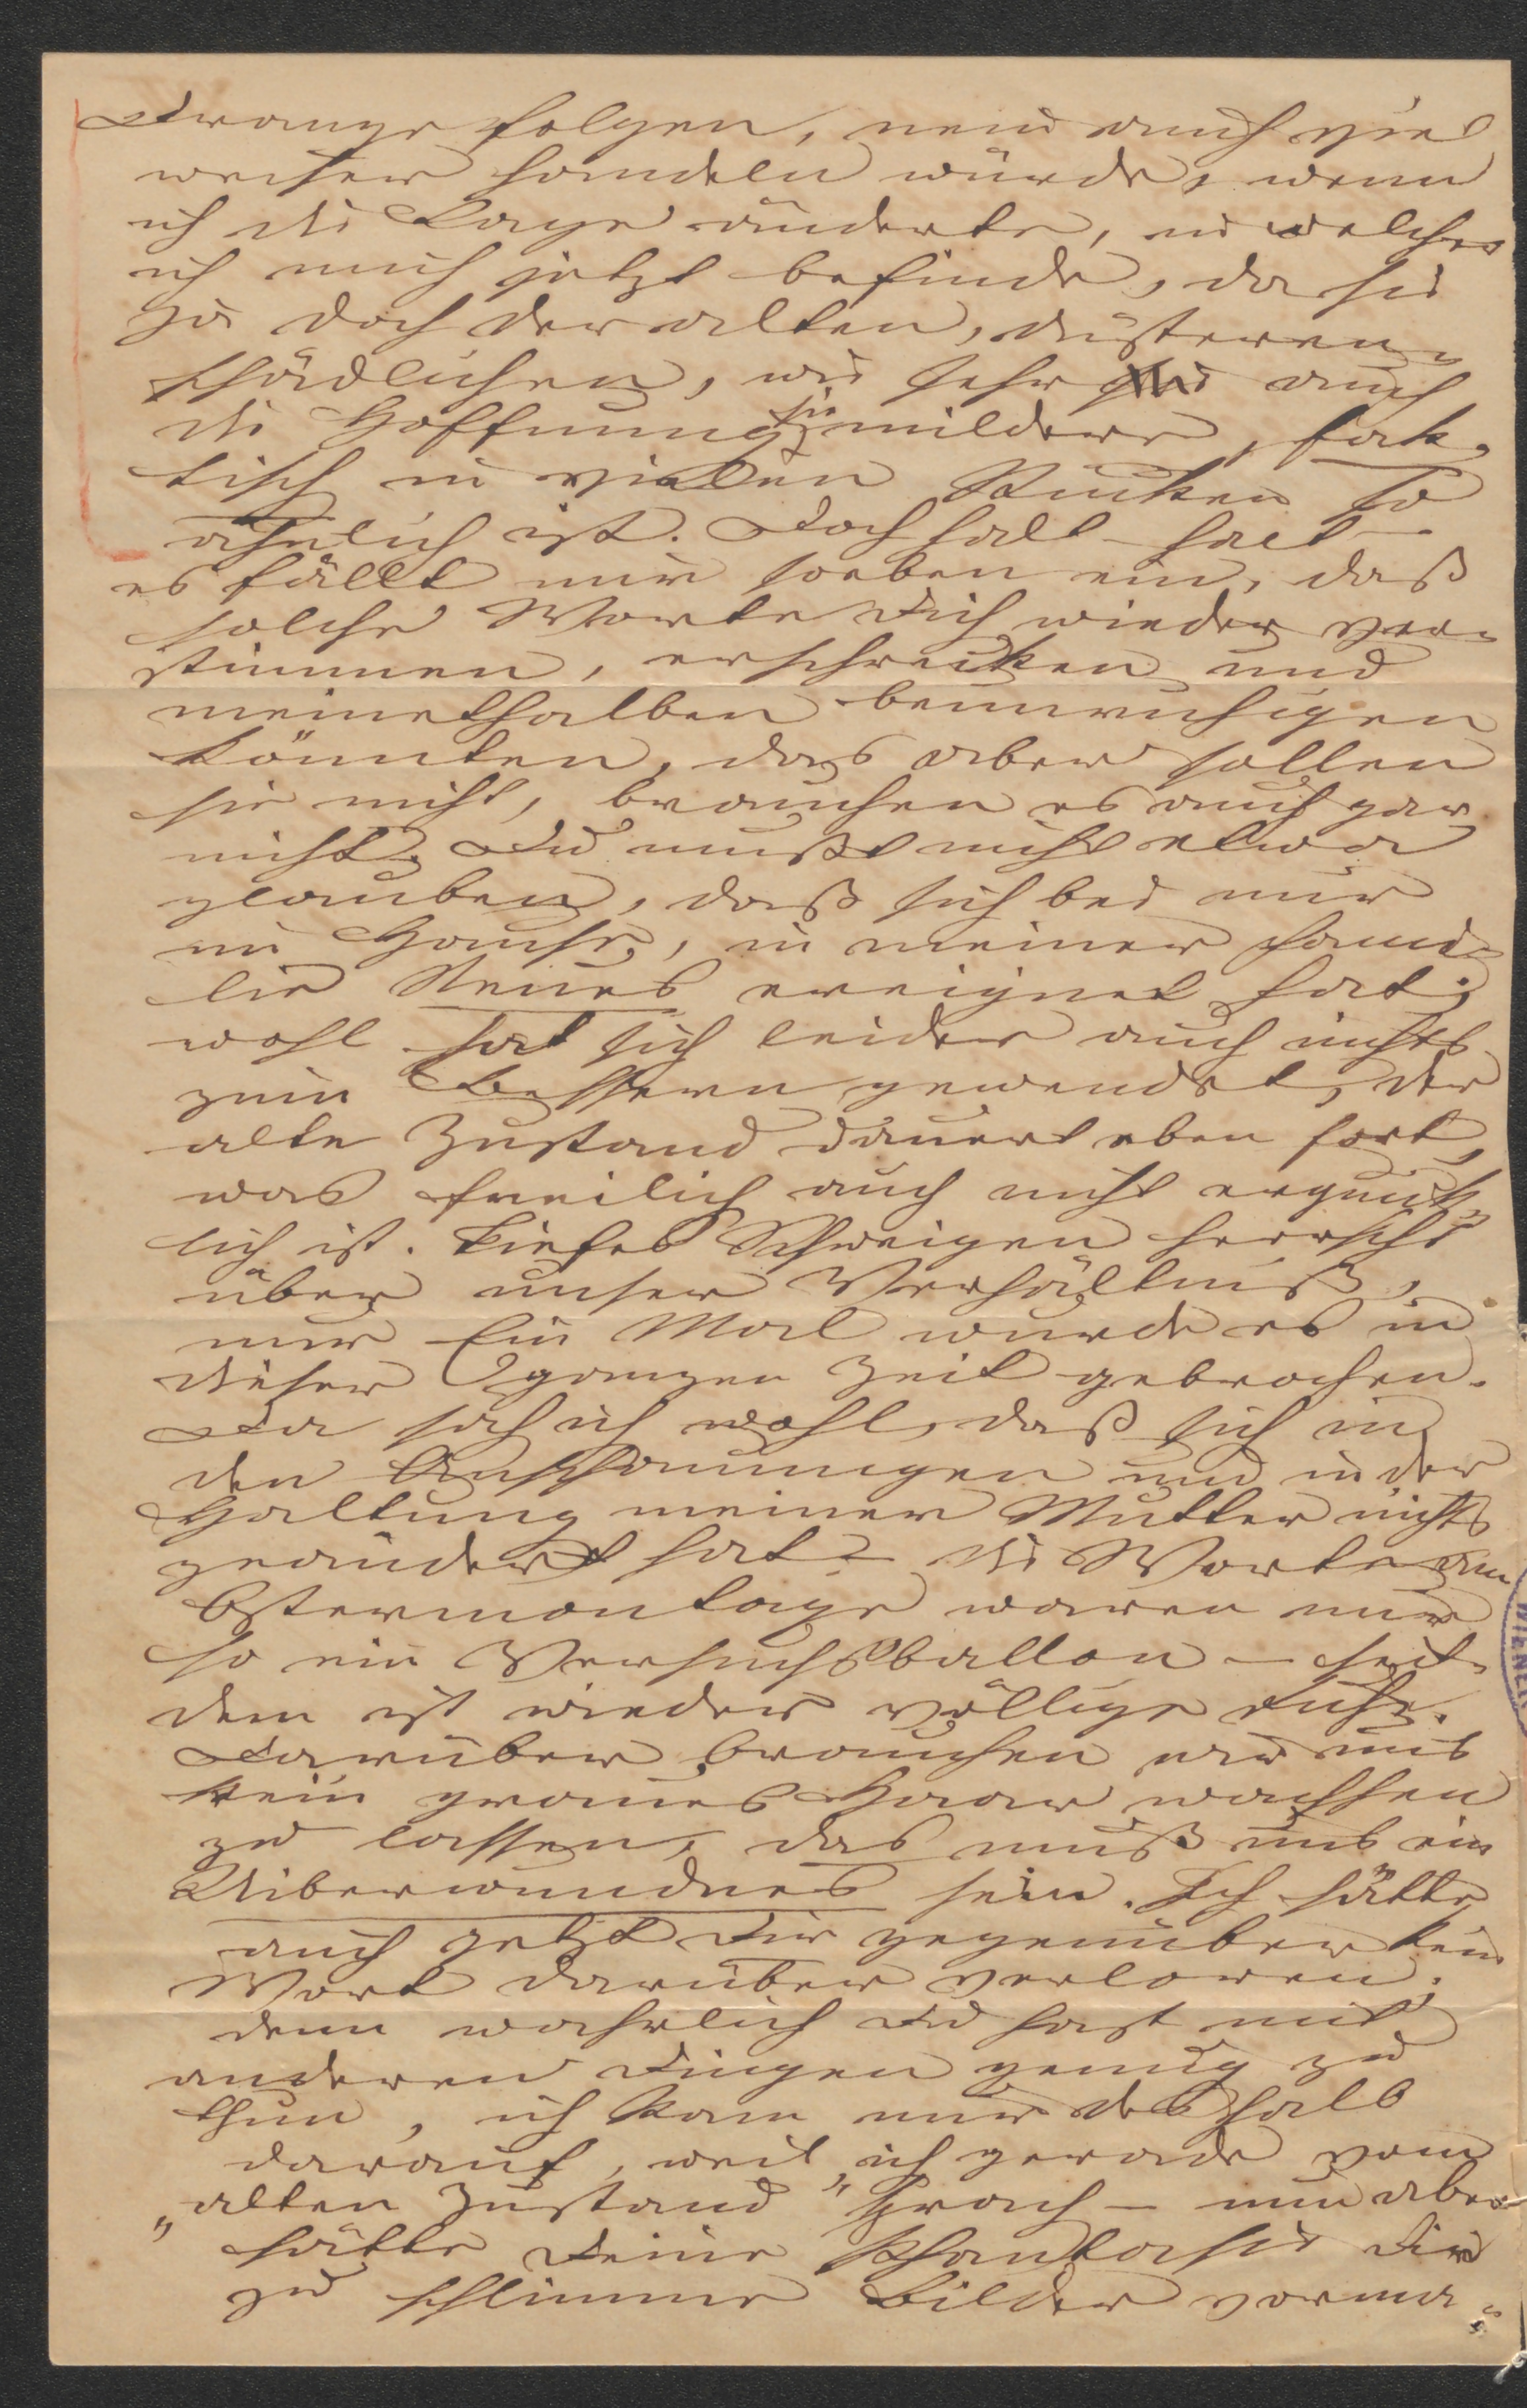 Drange folgen, nein auch viel
weiser handeln würde, wenn
ich die Lage änderte, in welcher
ich mich jetzt befinde, da sie
ja doch der alten, düsteren,
schädlichen, wie sehr auch
die Hoffnung sie mildere, fak-
tisch in vielen Stücken so
ähnlich ist. Doch halt – halt –
es fällt mir soeben ein, daß
solche Worte Dich wieder ver-
stimmen, erschrecken und
meinethalben beunruhigen
könnten, das aber sollen
sie nicht, brauchen es auch gar
nicht. Du mußt nicht etwa
glauben, daß sich bei mir
im Hause, in meiner Fami-
lie Neues ereignet hat;
wohl hat sich leider auch nichts
zum Bessern gewendet, der
alte Zustand dauert eben fort,
was freilich auch nicht erquick-
lich ist. Tiefes Schweigen herrscht
über unser Verhältniß,
nur Ein Mal wurde es in
dieser ganzen Zeit gebrochen.
Da sah ich wohl, daß sich in
den Anschauungen und in der
Haltung meiner Mutter nichts
geändert hat – die Worte am
Ostermontage waren nur
so ein Versuchsballon – seit-
dem ist wieder völlige Ruhe.
Darüber brauchen wir uns
kein graues Haar wachsen
zu lassen, das muß uns ein
Uiberwundnes sein. Ich hätte
auch jetzt Dir gegenüber kein
Wort darüber verloren;
denn wahrlich Du hast mit
anderen Dingen genug zu
thun, ich kam nur deshalb
darauf, weil ich gerade vom
„alten Zustand" sprach – nun aber
hätte Deine Phantasie Dir
zu schlimme Bilder vorma-
WIENER